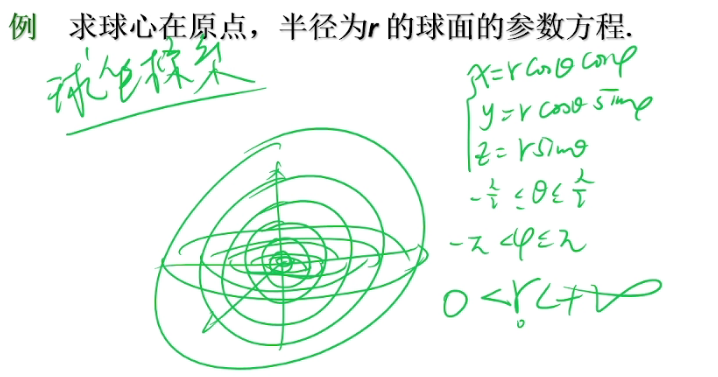 例 求球心在原点，半径为r 的球面的参数方程.
球坐标系
x=r cosθ cosφ
y=r cosθ sinφ
z=r sinθ
-π/2 ≤θ≤ π/2
-π<φ≤π
0<r<+∞